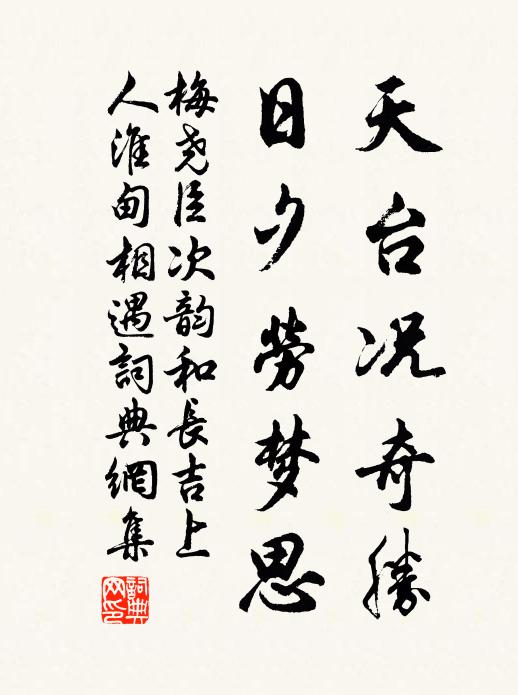 天台况奇勝
日夕勞梦思
梅尧臣次韵和長吉上
人淮甸相遇詞典網集
詞典
网印